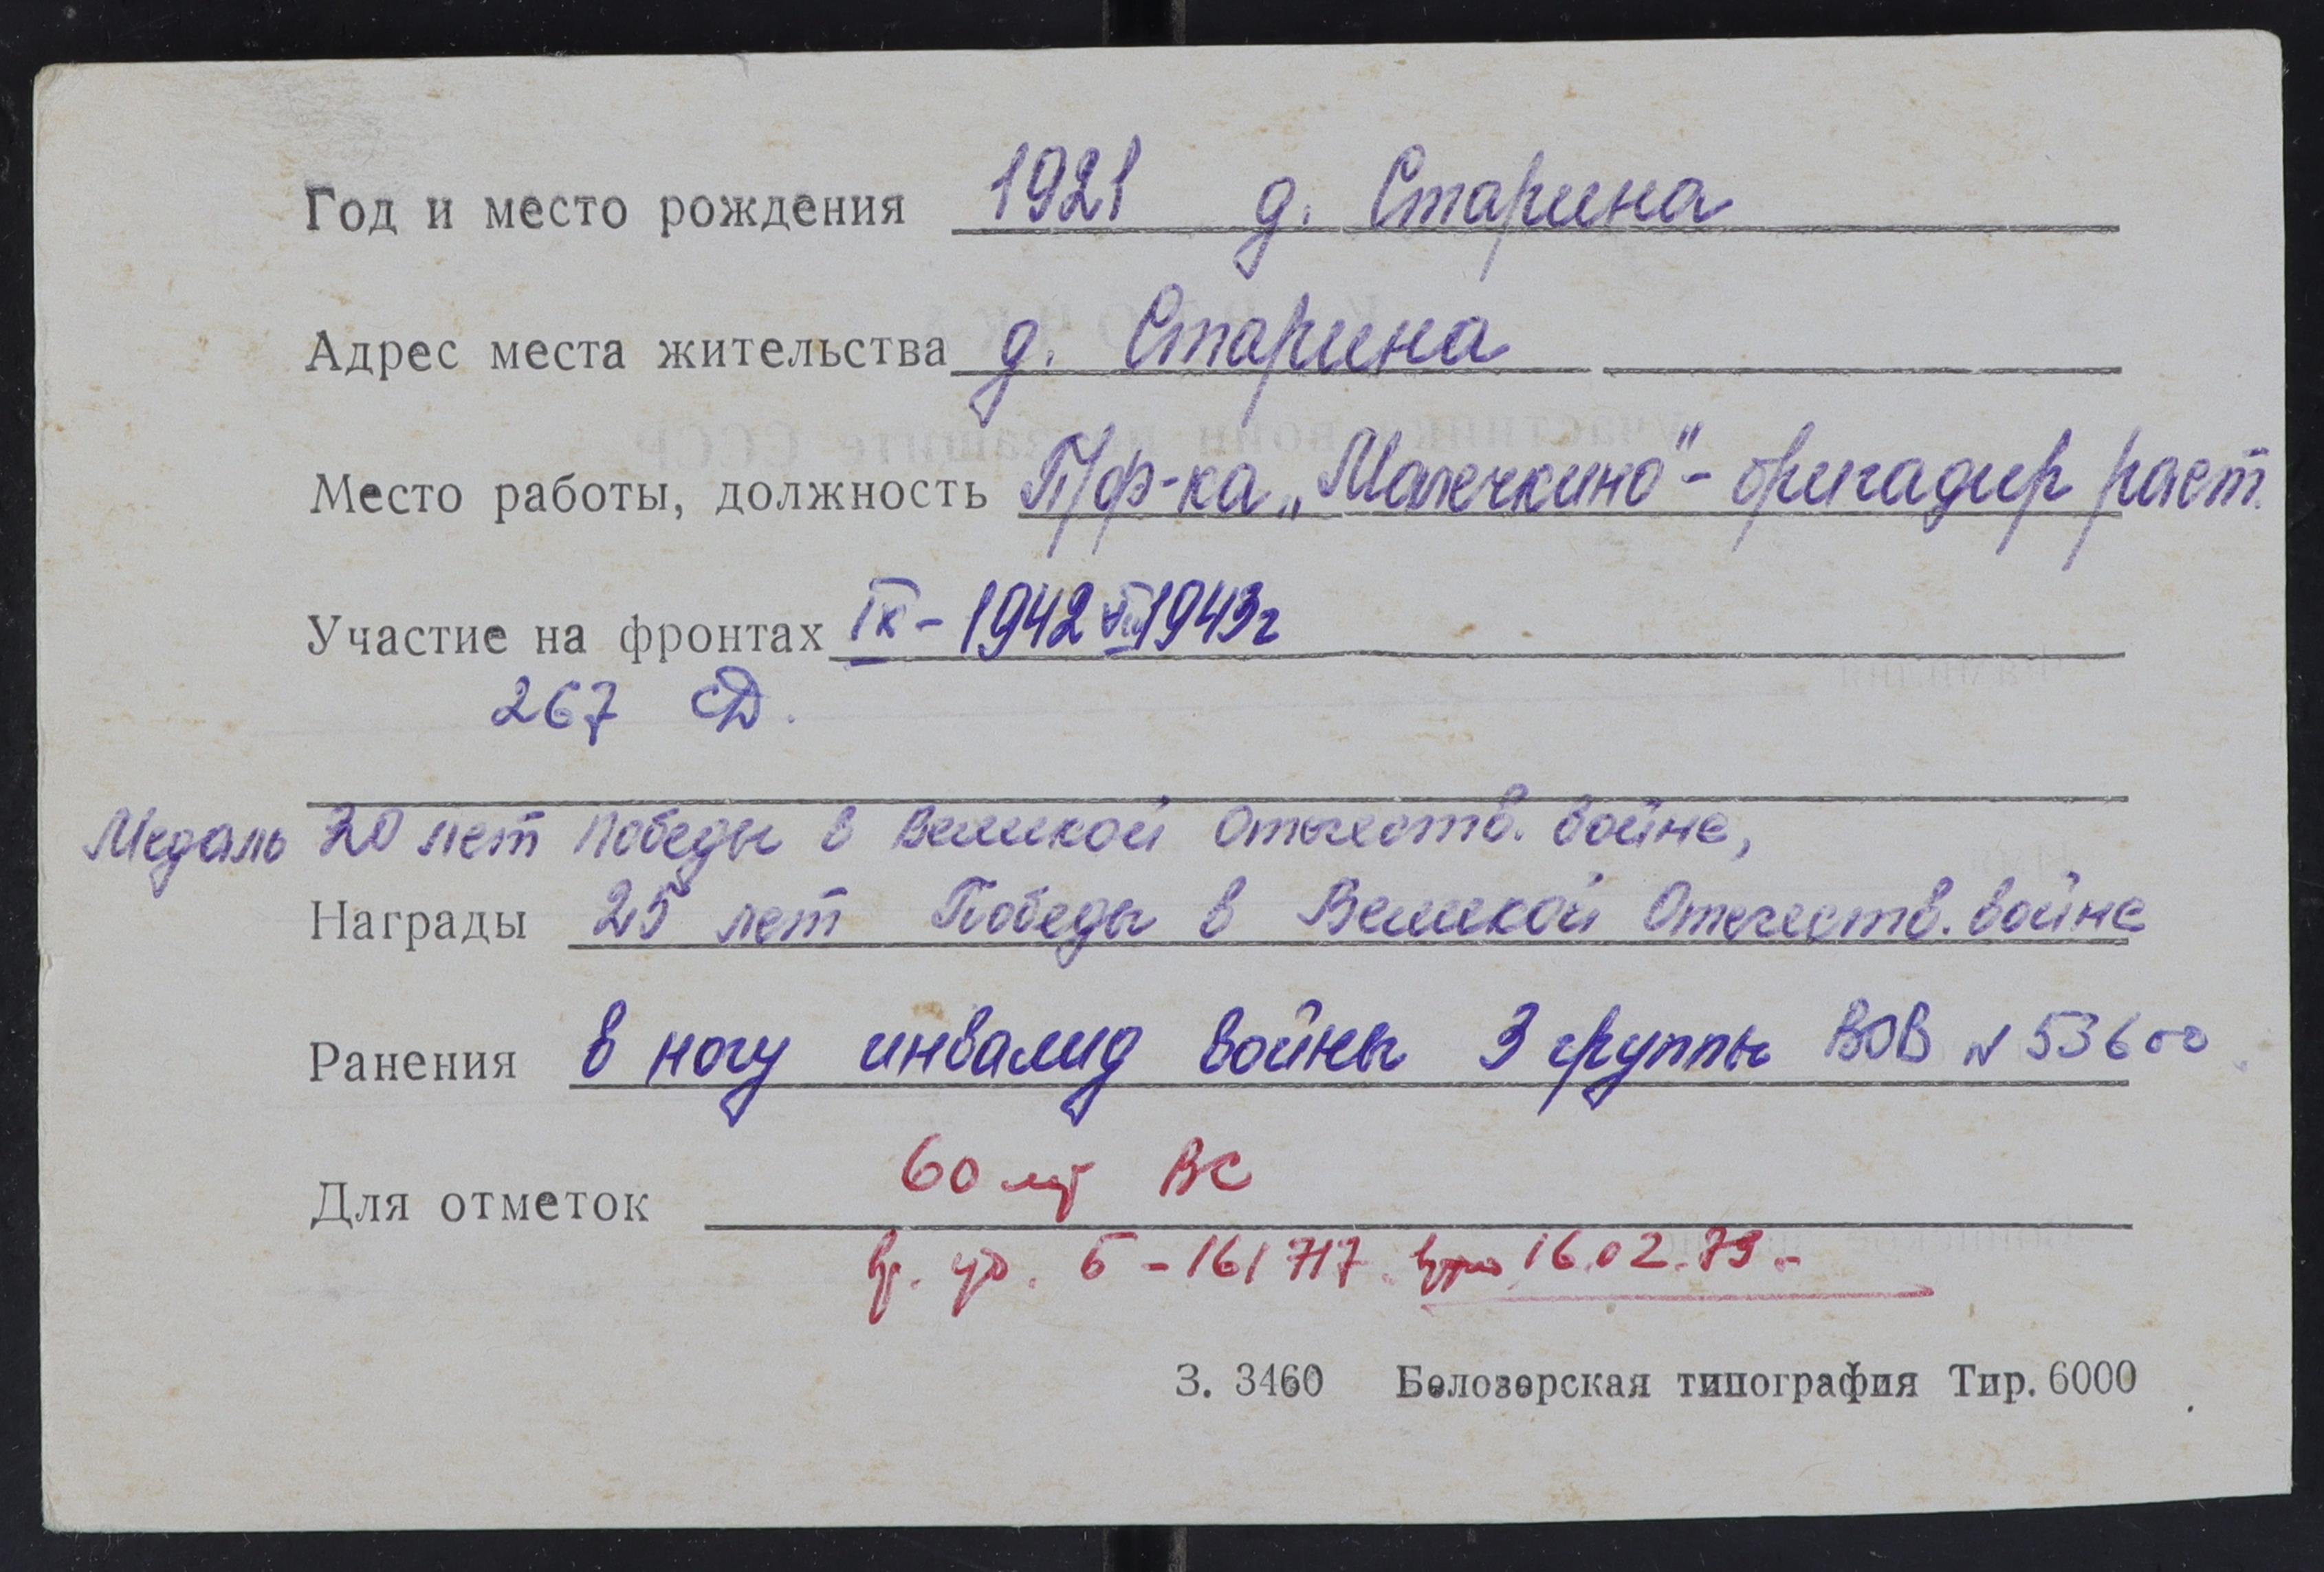 Год и место рождения 1921 д. Старина
Адрес места жительства д. Старина
Место работы, должность П/ф-ка „Малечкино" - бригадир раст.
Участие на фронтах IX - 1942 VIII 1943г
267 СД.
Медаль 20 лет Победы в Великой Отечеств. войне,
Награды 25 лет Победы в Великой Отечеств. войне
Ранения в ногу инвалид войны 3 группы ВОВ № 53600
Для отметок 60 лет ВС
вр. уд. Б - 161717. 16.02.79.-
З. 3460 Белозерская типография Тир. 6000